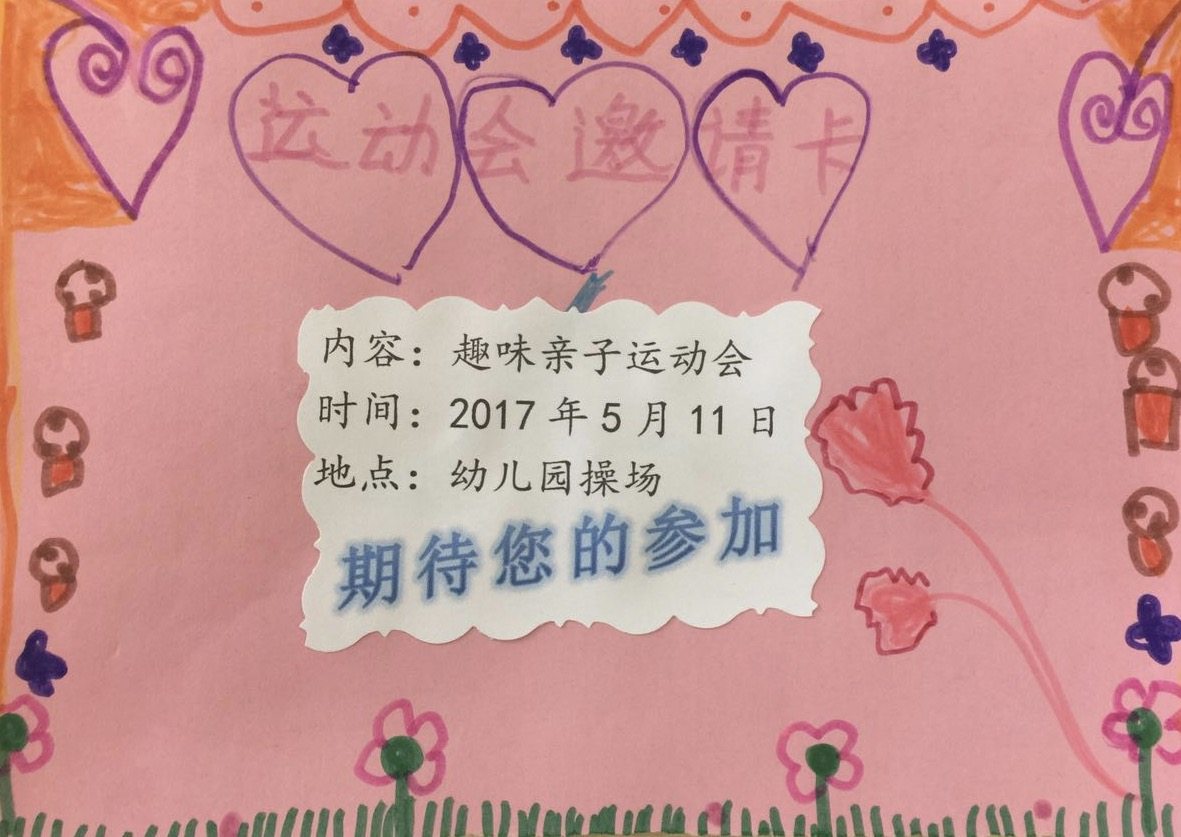 运动会邀请卡
内容：趣味亲子运动会
时间：2017年5月11日
地点：幼儿园操场
期待您的参加